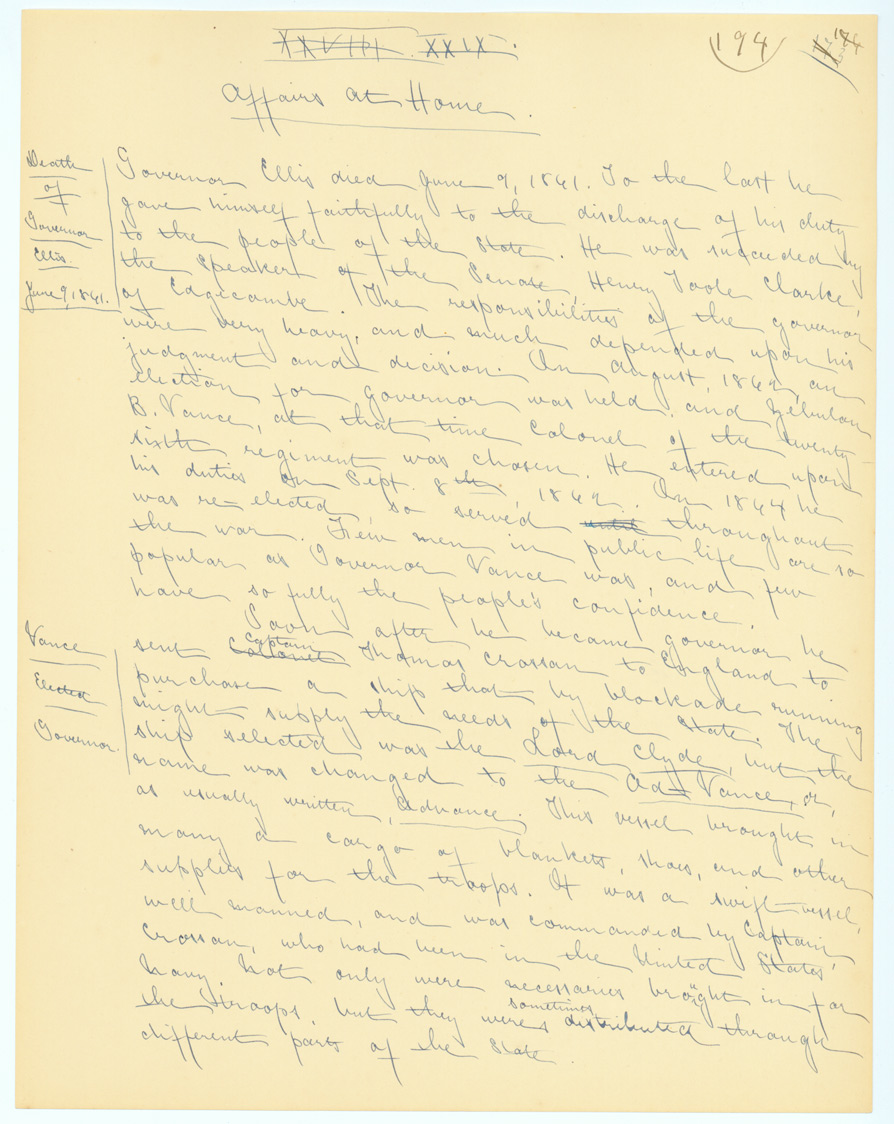 XXVIII. XXIX.
194
174
Affairs at Home.
Death
of
Governor
Ellis.
June 9, 1861.
Governor Ellis died June 9, 1861. To the last he
gave himself faithfully to the discharge of his duty
to the people of the state. He was succeeded by
the Speaker of the Senate, Henry Toole Clarke,
of Edgecombe. The responsibilities of the governor
were very heavy, and much depended upon his
judgment and decision. In August, 1862, an
election for governor was held, and Zebulon
B. Vance, at that time Colonel of the twenty-
sixth regiment was chosen. He entered upon
his duties on Sept. 8th, 1862. In 1864 he
was re-elected, so served until throughout
the war. Few men in public life are so
popular as Governor Vance was, and few
have so fully the people's confidence.
Vance
Elected
Governor.
Soon after he became governor he
sent Colonel Captain Thomas Crossan to England to
purchase a ship that by blockade running
might supply the needs of the State. The
ship selected was the Lord Clyde, but the
name was changed to the Ad-Vance, or,
as usually written, Advance. This vessel brought in
many a cargo of blankets, shoes, and other
supplies for the troops. It was a swift vessel,
well manned, and was commanded by Captain
Crossan, who had been in the United States'
Navy. Not only were necessaries brought in for
the troops, but they were sometimes distributed through
different parts of the State.